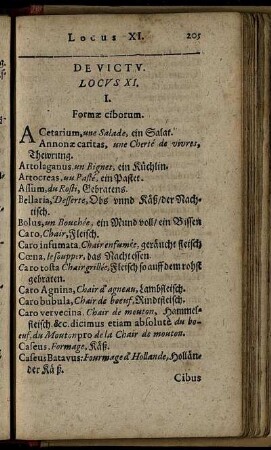 Locus XI. 205
DE VICTV.
LOCVS XI.
I.
Formæ ciborum.
ACetarium, une Salade, ein Salat.
Annonæ caritas, une Cherté de vivres,
Thewrung.
Artolaganus, un Bignet, ein Küchlin.
Artocreas, un Pasté, ein Pastet.
Assum, du Rosti, Gebratens.
Bellaria, Desserte, Obs vnnd Käß/der Nach-
tisch.
Bolus, un Bouchée, ein Mund voll/ ein Bissen
Caro, Chair, Fleisch.
Caro infumata, Chair enfumée, geräucht fleisch
Cœna, le soupper, das Nachtessen
Caro tosta Chair grillée, Fleisch so auff dem rohst
gebraten.
Caro Agnina, Chair d'agneau, Lambfleisch.
Caro bubula, Chair de boeuf, Rindfleisch.
Caro vervecina, Chair de mouton, Hammels-
fleisch. &c. dicimus etiam absolutè du bo-
euf, du Mouton pro de la Chair de mouton.
Caseus, Formage, Käß.
Caseus Batavus: Fourmage d'Hollande, Hollän-
der Käß.
Cibus